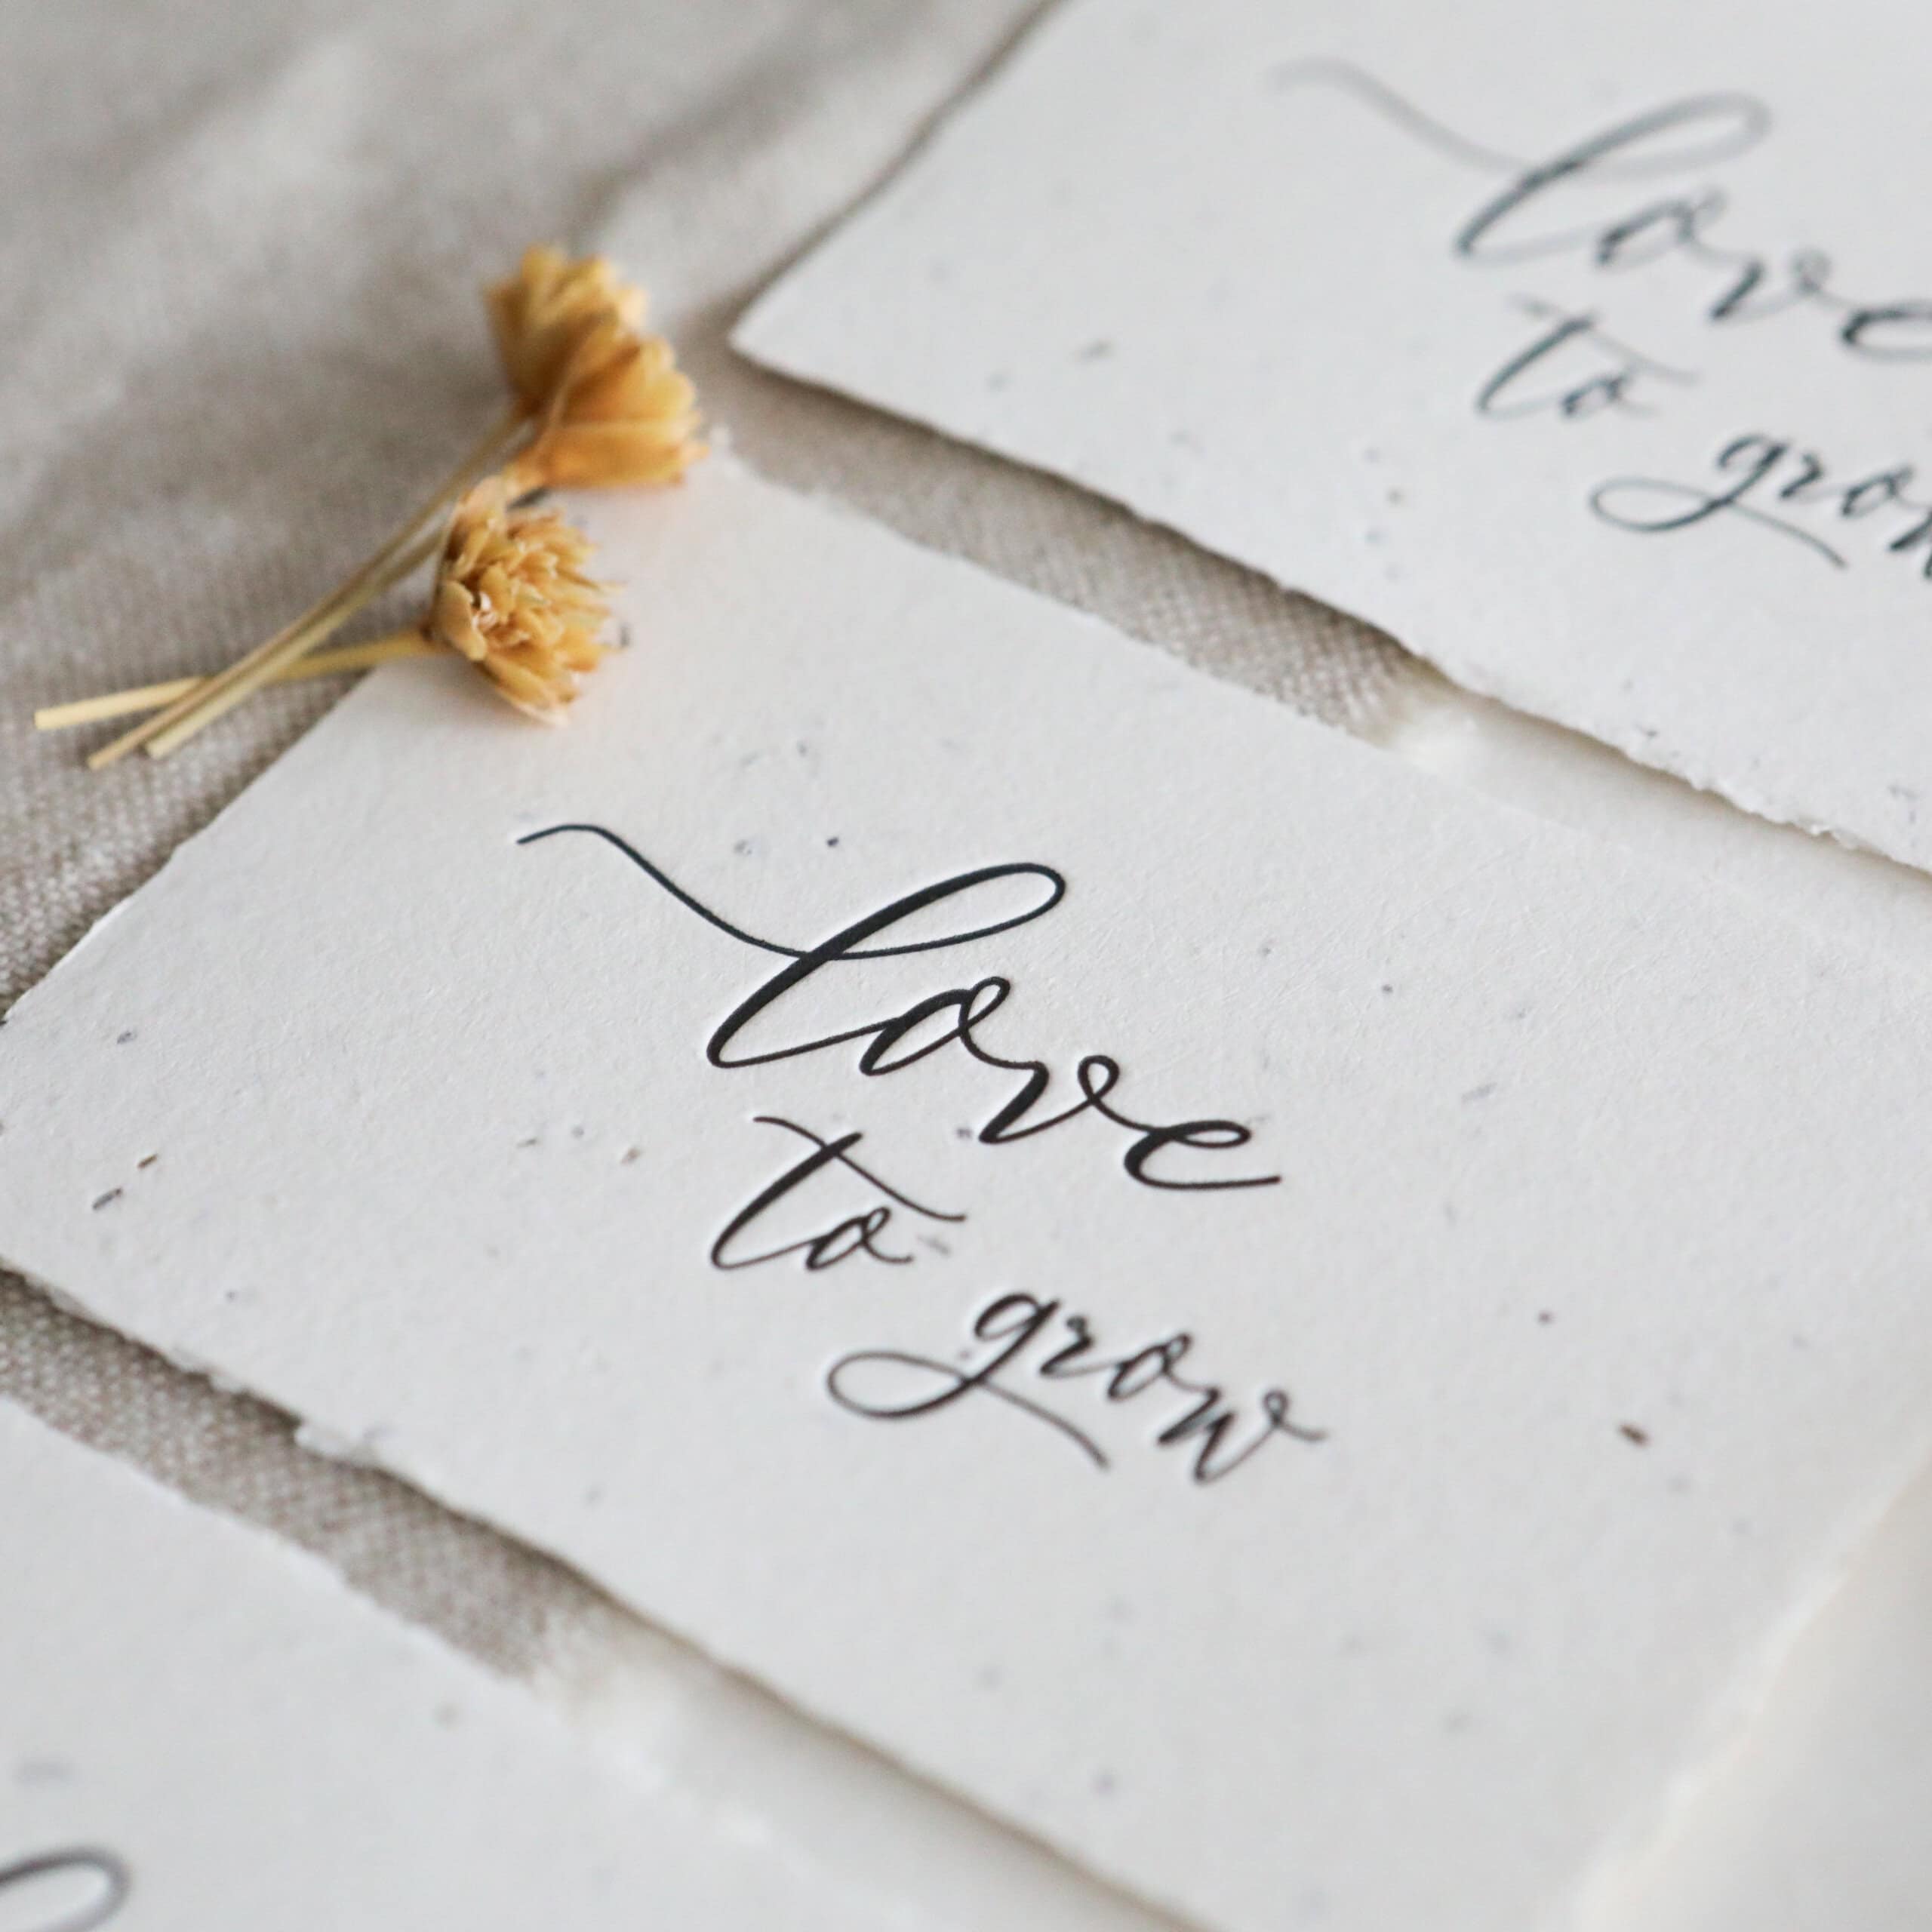 love
to
grow
love
to